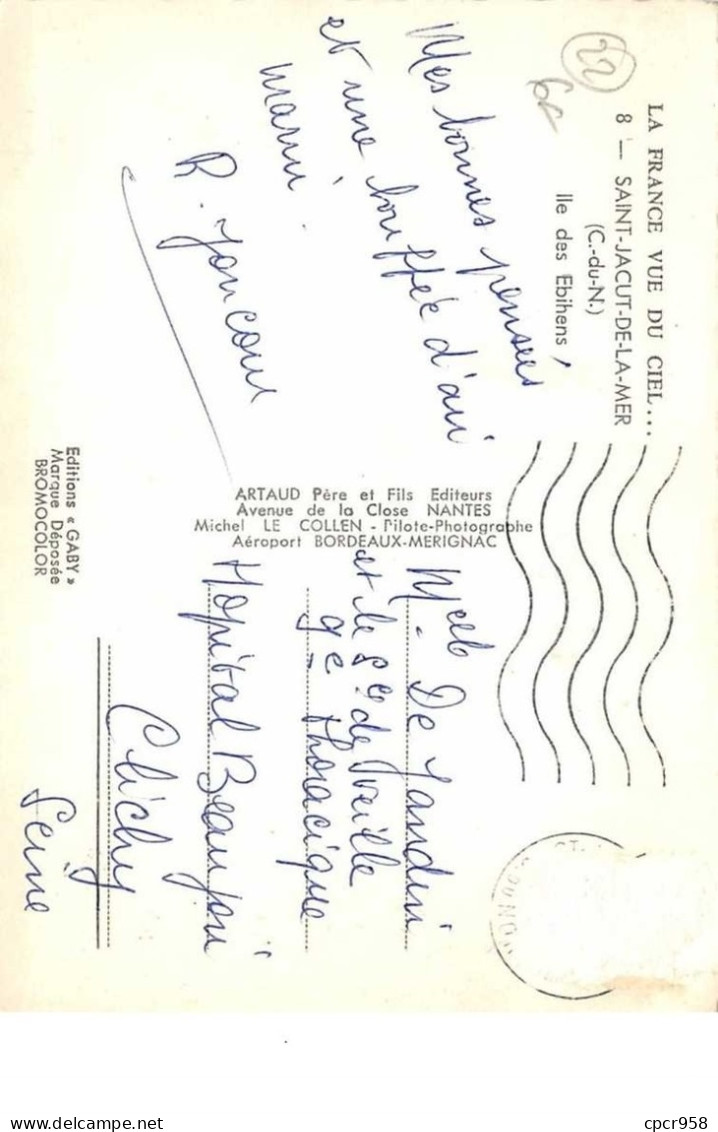 LA FRANCE VUE DU CIEL...
8 — SAINT-JACUT-DE-LA-MER
(C.-du-N.)
Ile des Ebihens
22
Mes bonnes pensées
et une bouffée d'air
marin.
R.
ARTAUD Père et Fils Editeurs
Avenue de la Close NANTES
Michel LE COLLEN - Pilote-Photographe
Aéroport BORDEAUX-MERIGNAC
Editions « GABY »
Marque Déposée
BROMOCOLOR
Melle De
et le Sce de Veille
thoracique
Hôpital Beaujon
Clichy
Seine
cpcr958